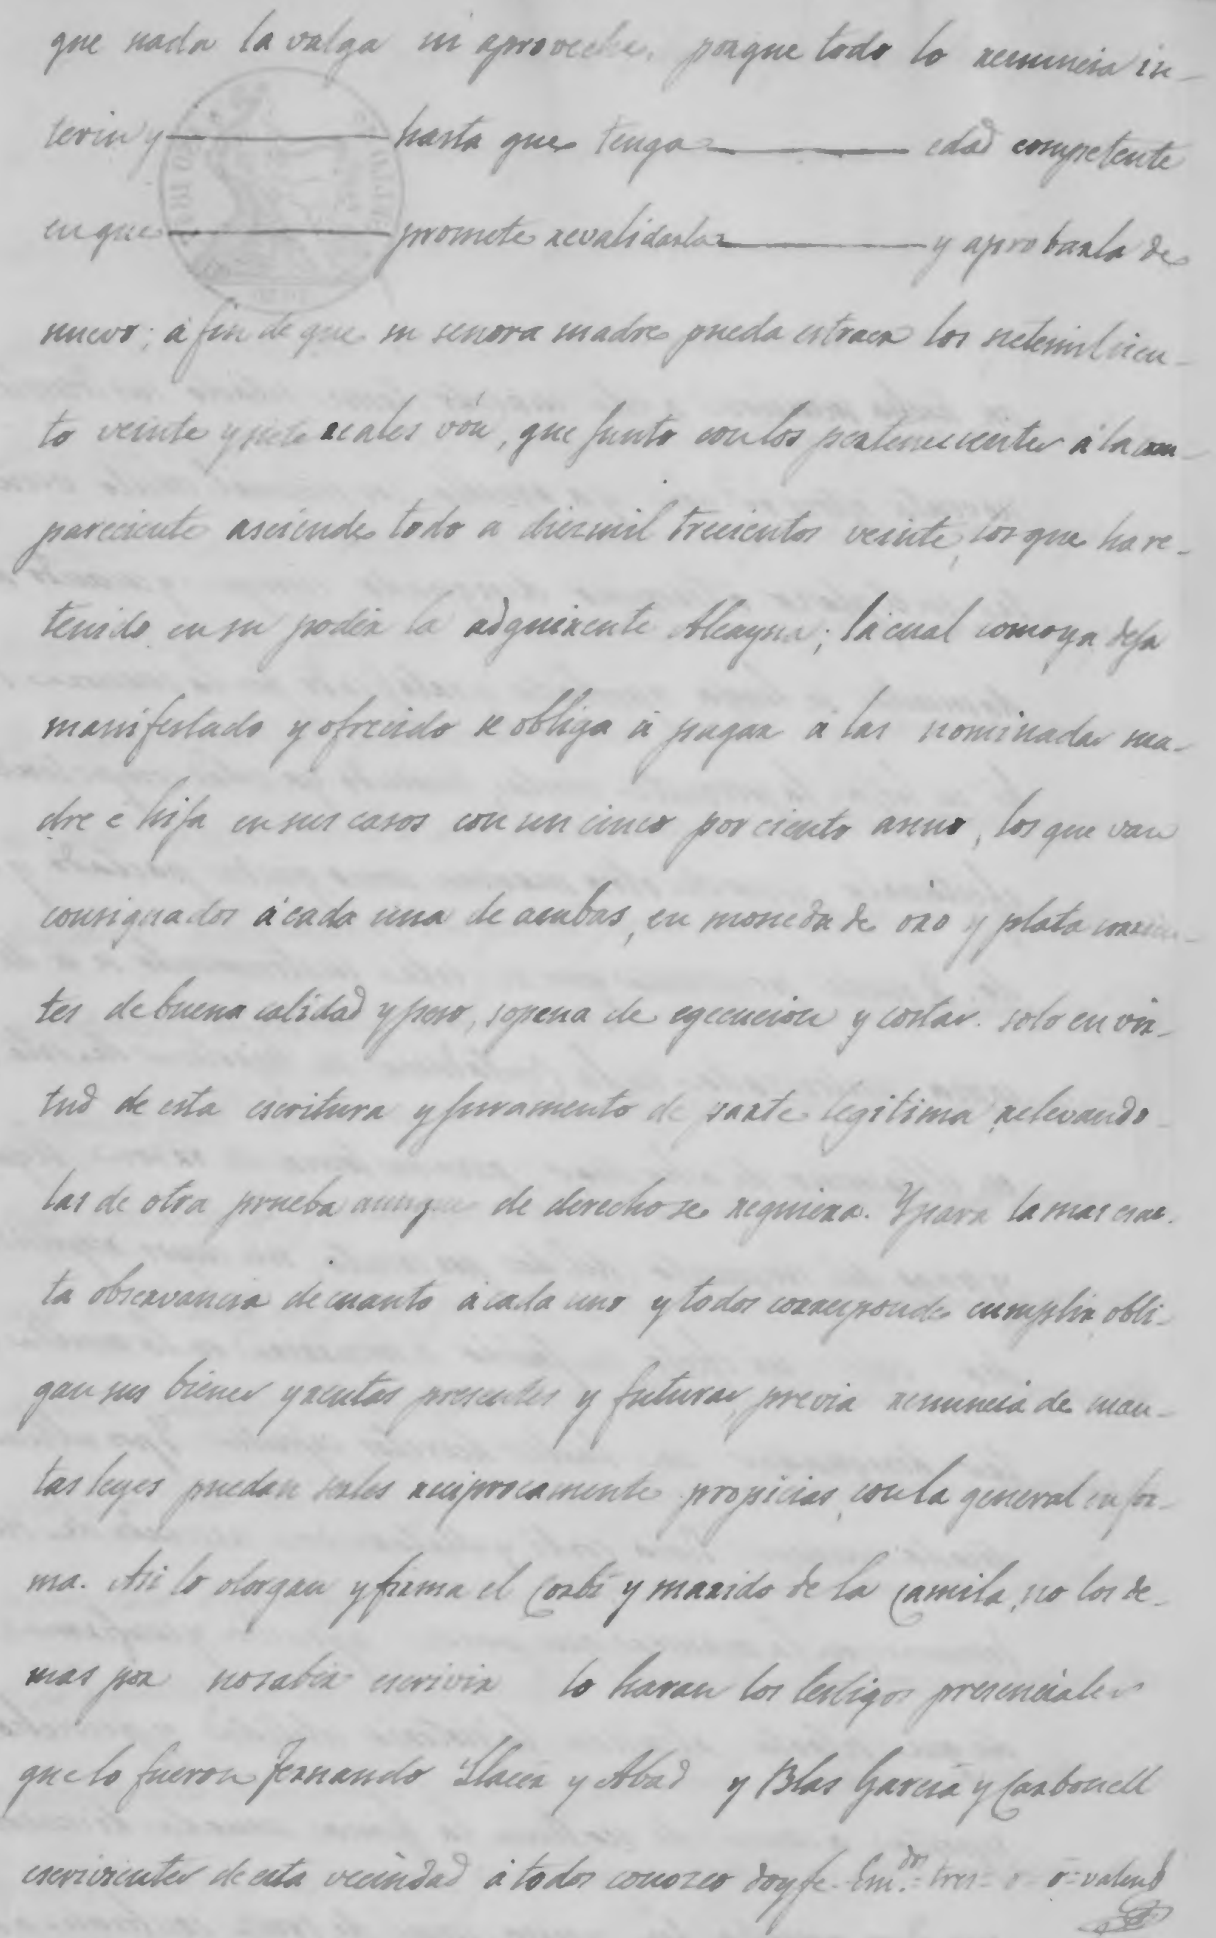 que nada la valga ni aproveche, porque todo lo renuncia in-
terin y hasta que tenga edad competente
en que promete revalidarla y aprobarla de
nuevo; á fin de que su senora madre pueda estraer los sietemil cien-
to veinte y siete reales von, que junto con los pertenecientes á la com-
pareciente asciende todo a diezmil trecientos veinte, los que ha re-
tenido en su poder la adquirente Alcayna; la cual como ya deja
manifestado y ofrecido se obliga á pagar á las nominadas ma-
dre e hija en sus casos con un cinco por ciento anuo, los que van
consignados á cada una de ambas, en moneda de oro y plata corrien-
tes de buena calidad y peso, sopena de egecucion y costas. solo en vir-
tud de esta escritura y juramento de parte legitima relevando-
las de otra prueba aunque de derecho se requiera. Y para la mas exac-
ta observancia de cuanto á cada uno y todos corresponde cumplir obli-
gan sus bienes y rentas presentes y futuras, previa renuncia de cuan-
tas leyes puedan serles reciprocamente propicias, con la general en for-
ma. Asi lo otorgan y firma el Corbi y marido de la Camila, no los de-
mas por no saber escrivir lo haran los testigos presenciales
que lo fueron Fernando Llacer y Abad y Blas Garcia y Carbonell
escrivientes de esta vecindad á todos conozco doy fe. Em.dos = tres = o = o = valend